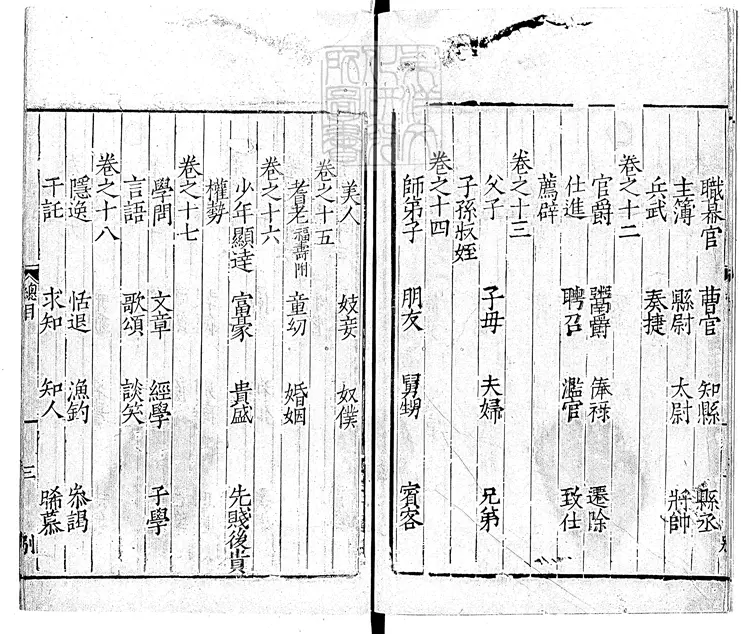 職幕官 曹官 知縣 縣丞
主簿 縣尉 太尉 將帥
兵武 奏捷
卷之十二
官爵 鬻爵 俸祿 遷除
仕進 聘召 濫官 致仕
薦辟
卷之十三
父子 子母 夫婦 兄弟
子孫叔姪
卷之十四
師弟子 朋友 舅甥 賓客
美人 妓妾 奴僕
卷之十五
耆老福壽附 童幼 婚姻
卷之十六
少年顯達 富豪 貴盛 先賤後貴
權勢
卷之十七
學問 文章 經學 子學
言語 歌頌 談笑
卷之十八
隱逸 恬退 漁釣 叅謁
干託 求知 知人 晞慕
總目 三